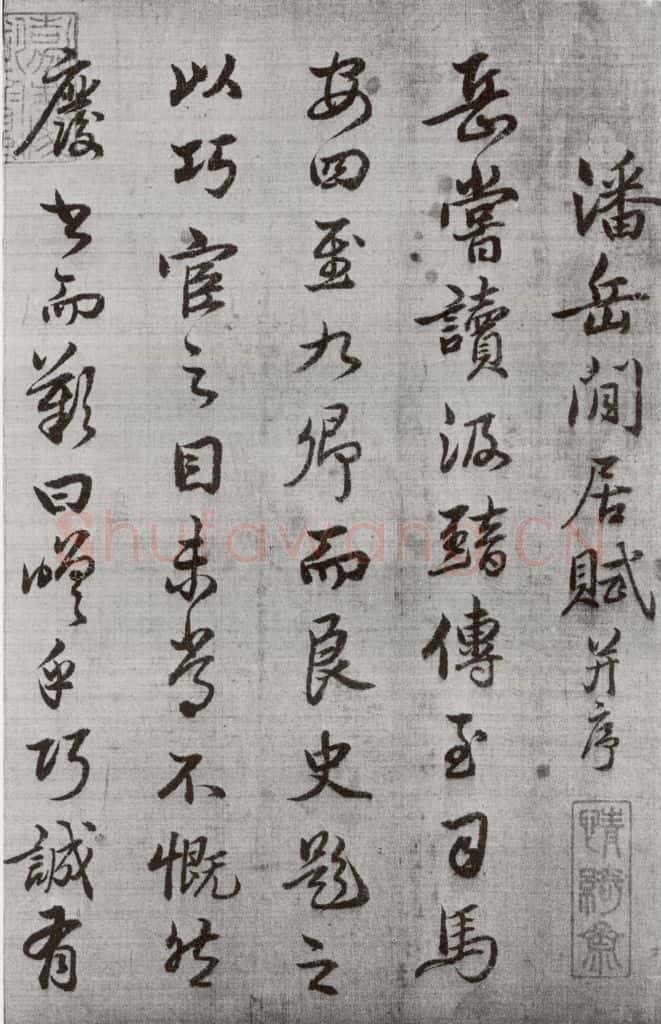 潘岳閒居賦并序
岳嘗讀汲黯傳至司馬
安四至九卿而良史題之
以巧宦之目未嘗不慨然
廢書而歎曰嗟乎巧誠有
Shufawang.CN